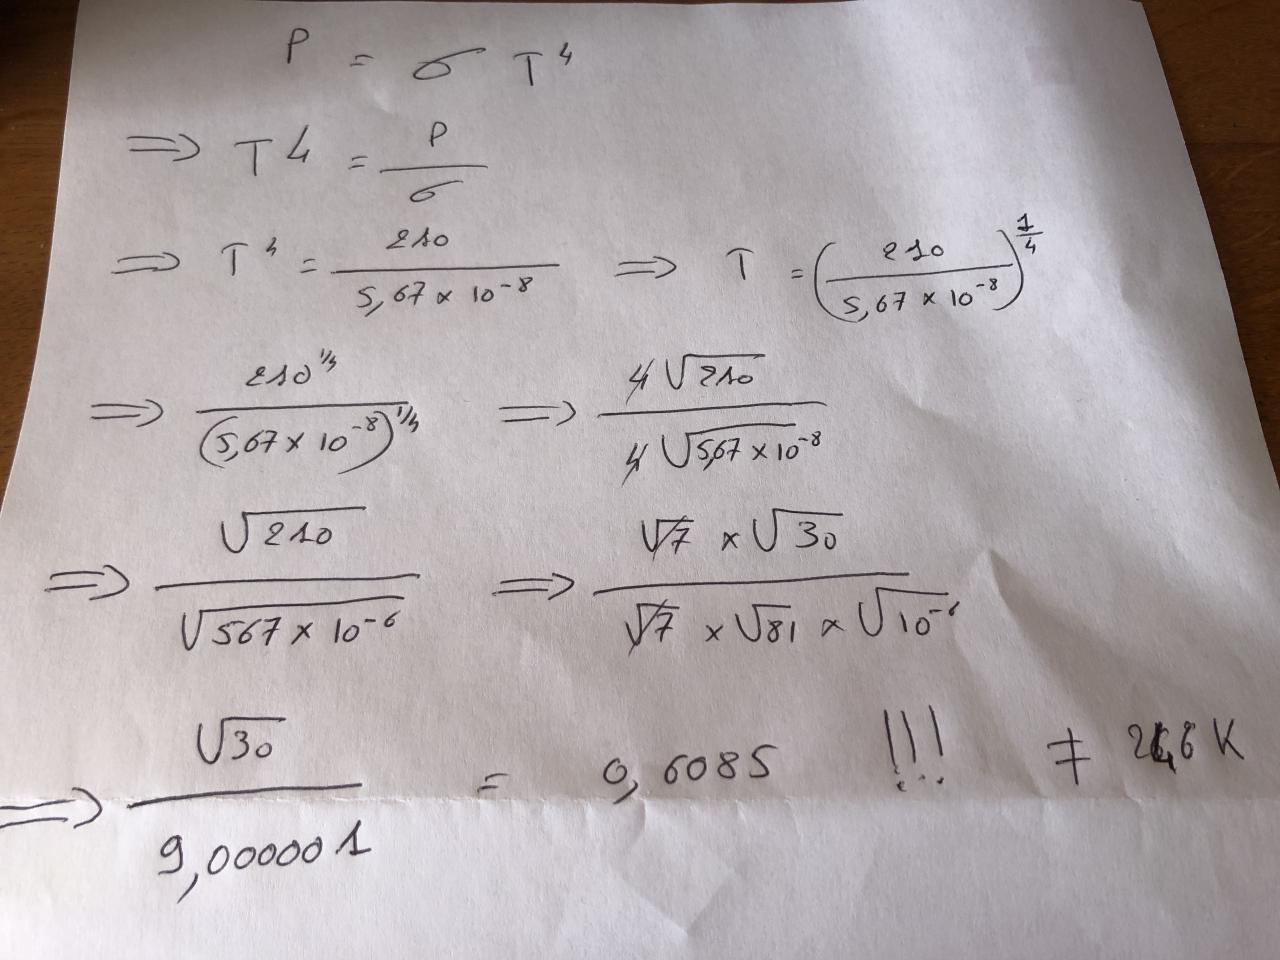 P = σ T⁴
⇒ T⁴ = P/σ
⇒ T⁴ = 210/(5,67 × 10⁻⁸) ⇒ T = (210/(5,67 × 10⁻⁸))^(1/4)
⇒ 210^(1/4)/(5,67 × 10⁻⁸)^(1/4) ⇒ 4√210/4√(5,67 × 10⁻⁸)
⇒ √210/√(567 × 10⁻⁶) ⇒ (√7 × √30)/(√7 × √81 × √10⁻⁶)
⇒ √30/9,000001 = 0,6085 !!! ≠ K